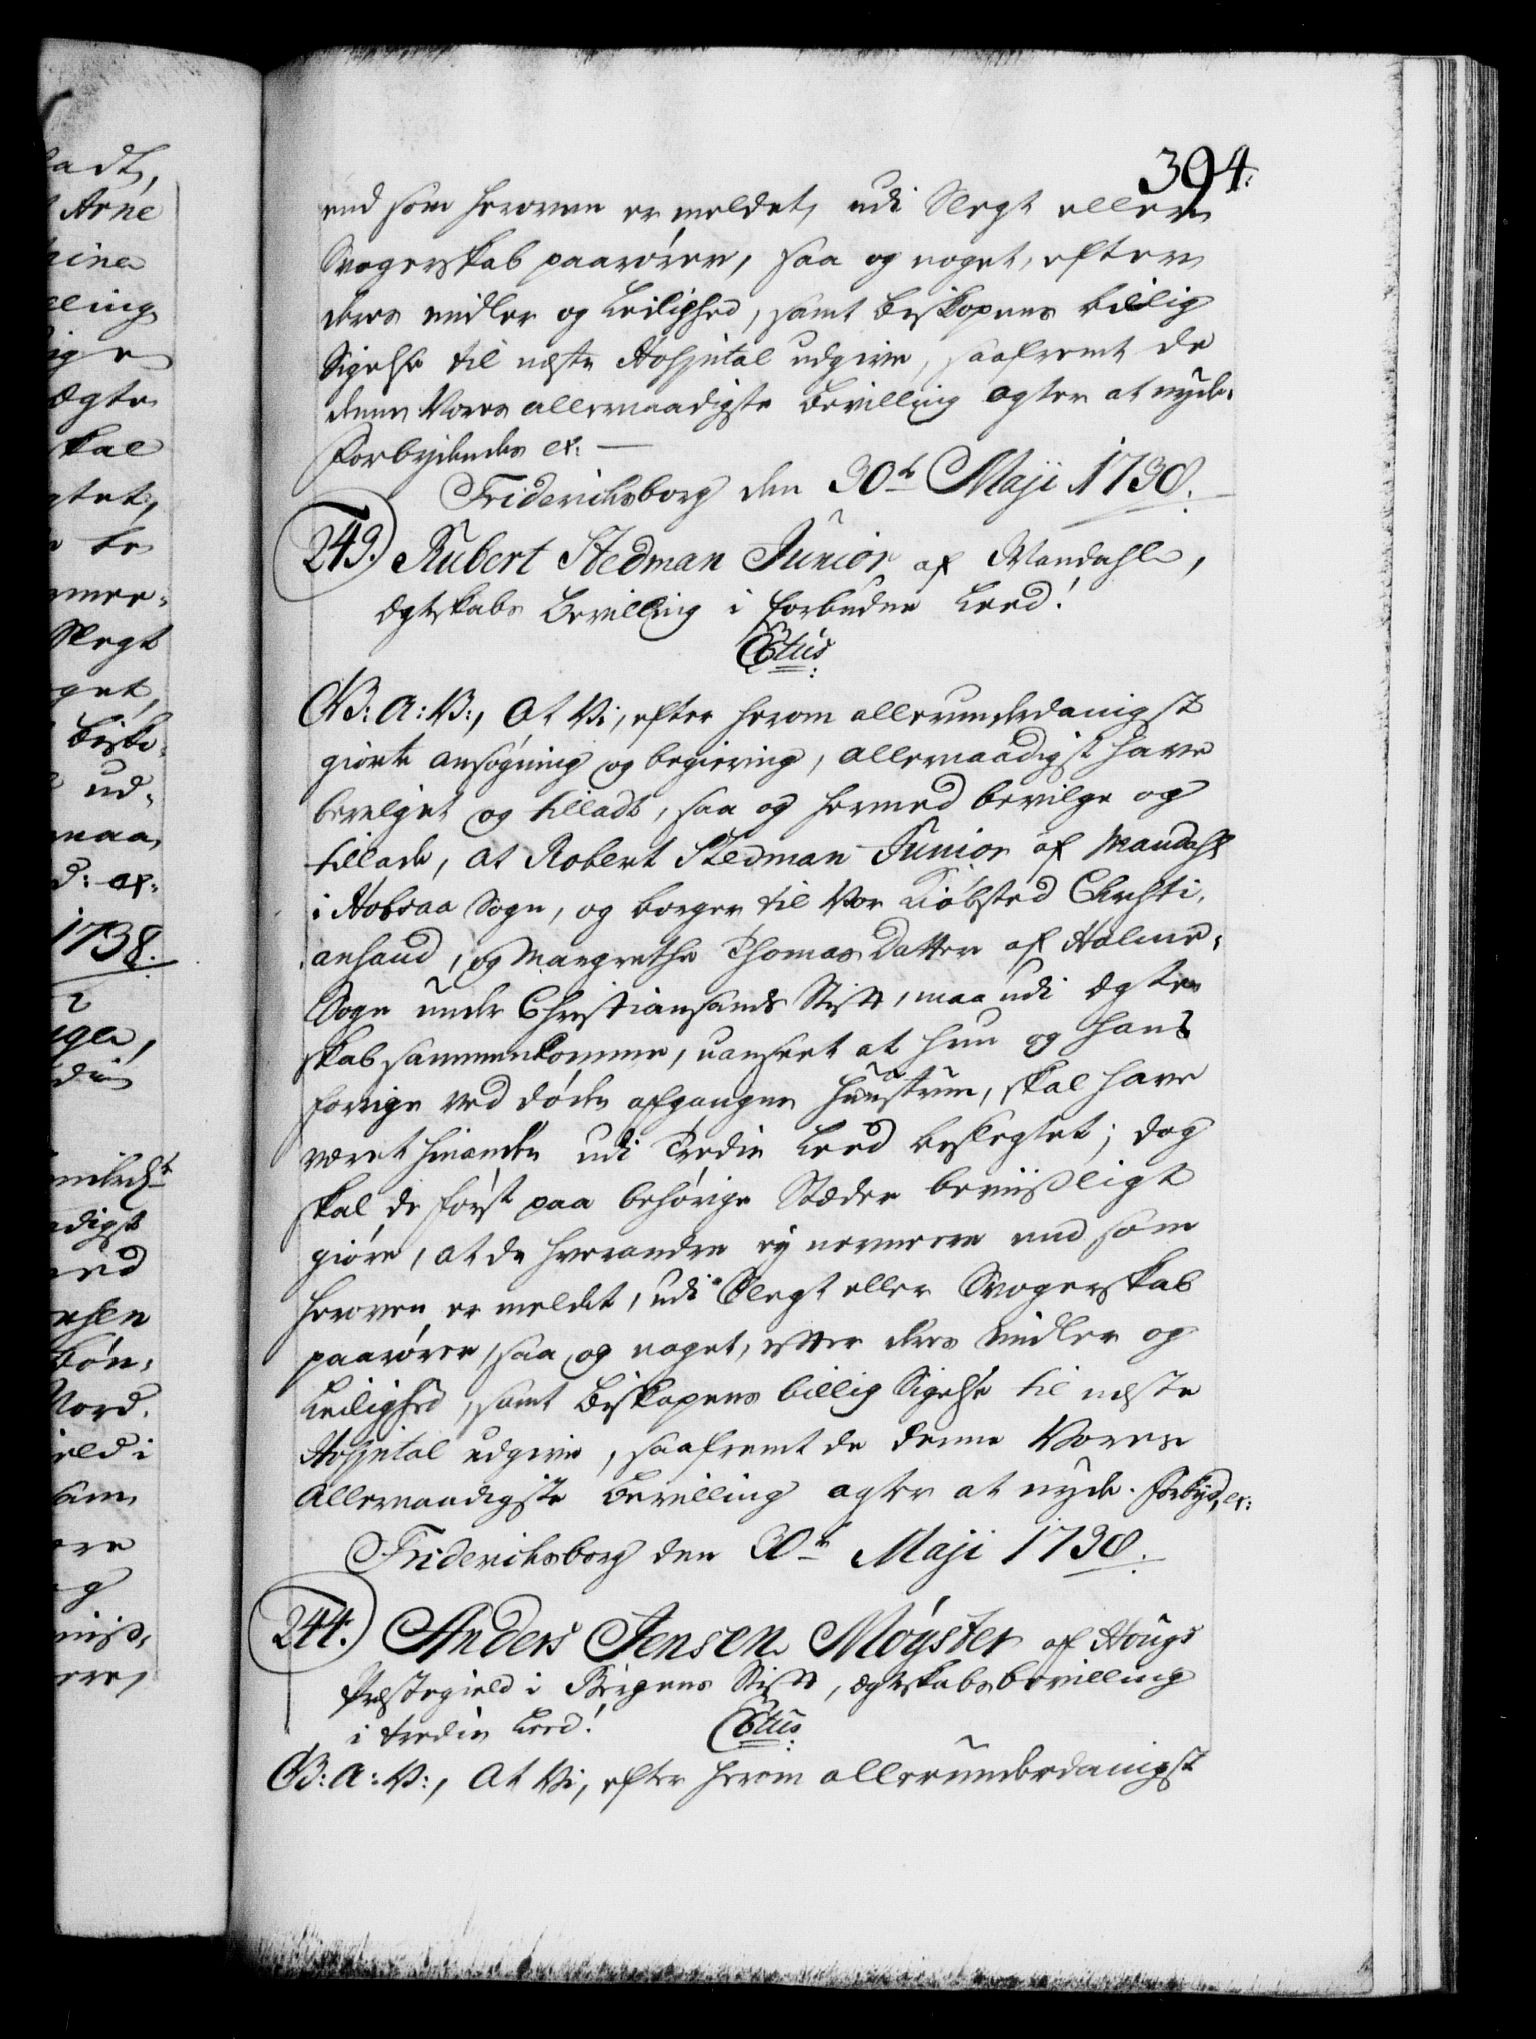 394.
end som heroven er meldet, udi Slegt eller
Svogerskab paarörer, saa og noget, efter
deres midler og Leilighed, samt Biskopens billig
Sigelse til neste Hospital udgive, saafremt de
denne Vores allernaadigste bevilling agter at nyde.
Forbydendes etc: —
Friderichsborg den 30te Maji 1738.
243. Rubert Stedman Junior af Mandahl,
Ægteskabs Bevilling i forbudne Leed!
C6tus
G. B: A: V:, At Vi, efter herom allerunderdanigst
giorte ansögning og begiering, allernaadigst have
bevilget og tilladt, saa og hermed bevilge og
tillade, at Robert Stedman Junior af Mandahl
i Holsaa Sogn, og borger til Vor Kiöbsted Christi-
ansand, og Margrethe Thomas Datter af Halme-
Sogn under Christiansands Stift, maa udi Ægte-
skab sammenkomme, uanseet at hun og hans
forrige ved döden afgangne Huustrue, skal have
været hinanden udi Tredie Leed beslegtet; dog
skal de först paa behörige Stæder beviisligt
giöre, at de hverandre ey nermere end som
heroven er meldet, udi Slegt eller Svogerskab
paarörer, saa og noget, efter deres midler og
Leilighed, samt Biskopens billig Sigelse til neste
Hospital udgive, saafremt de denne Vores
allernaadigste bevilling agter at nyde. Forbyd. etc:
Friderichsborg den 30te Maji 1738.
244. Anders Jensen Möyster af Hougs
Præstegield i Bergens Stift, Ægteskabsbevilling
i tredie Leed!
C6tus
G. B: A: V:, At Vi, efter herom allerunderdanigst